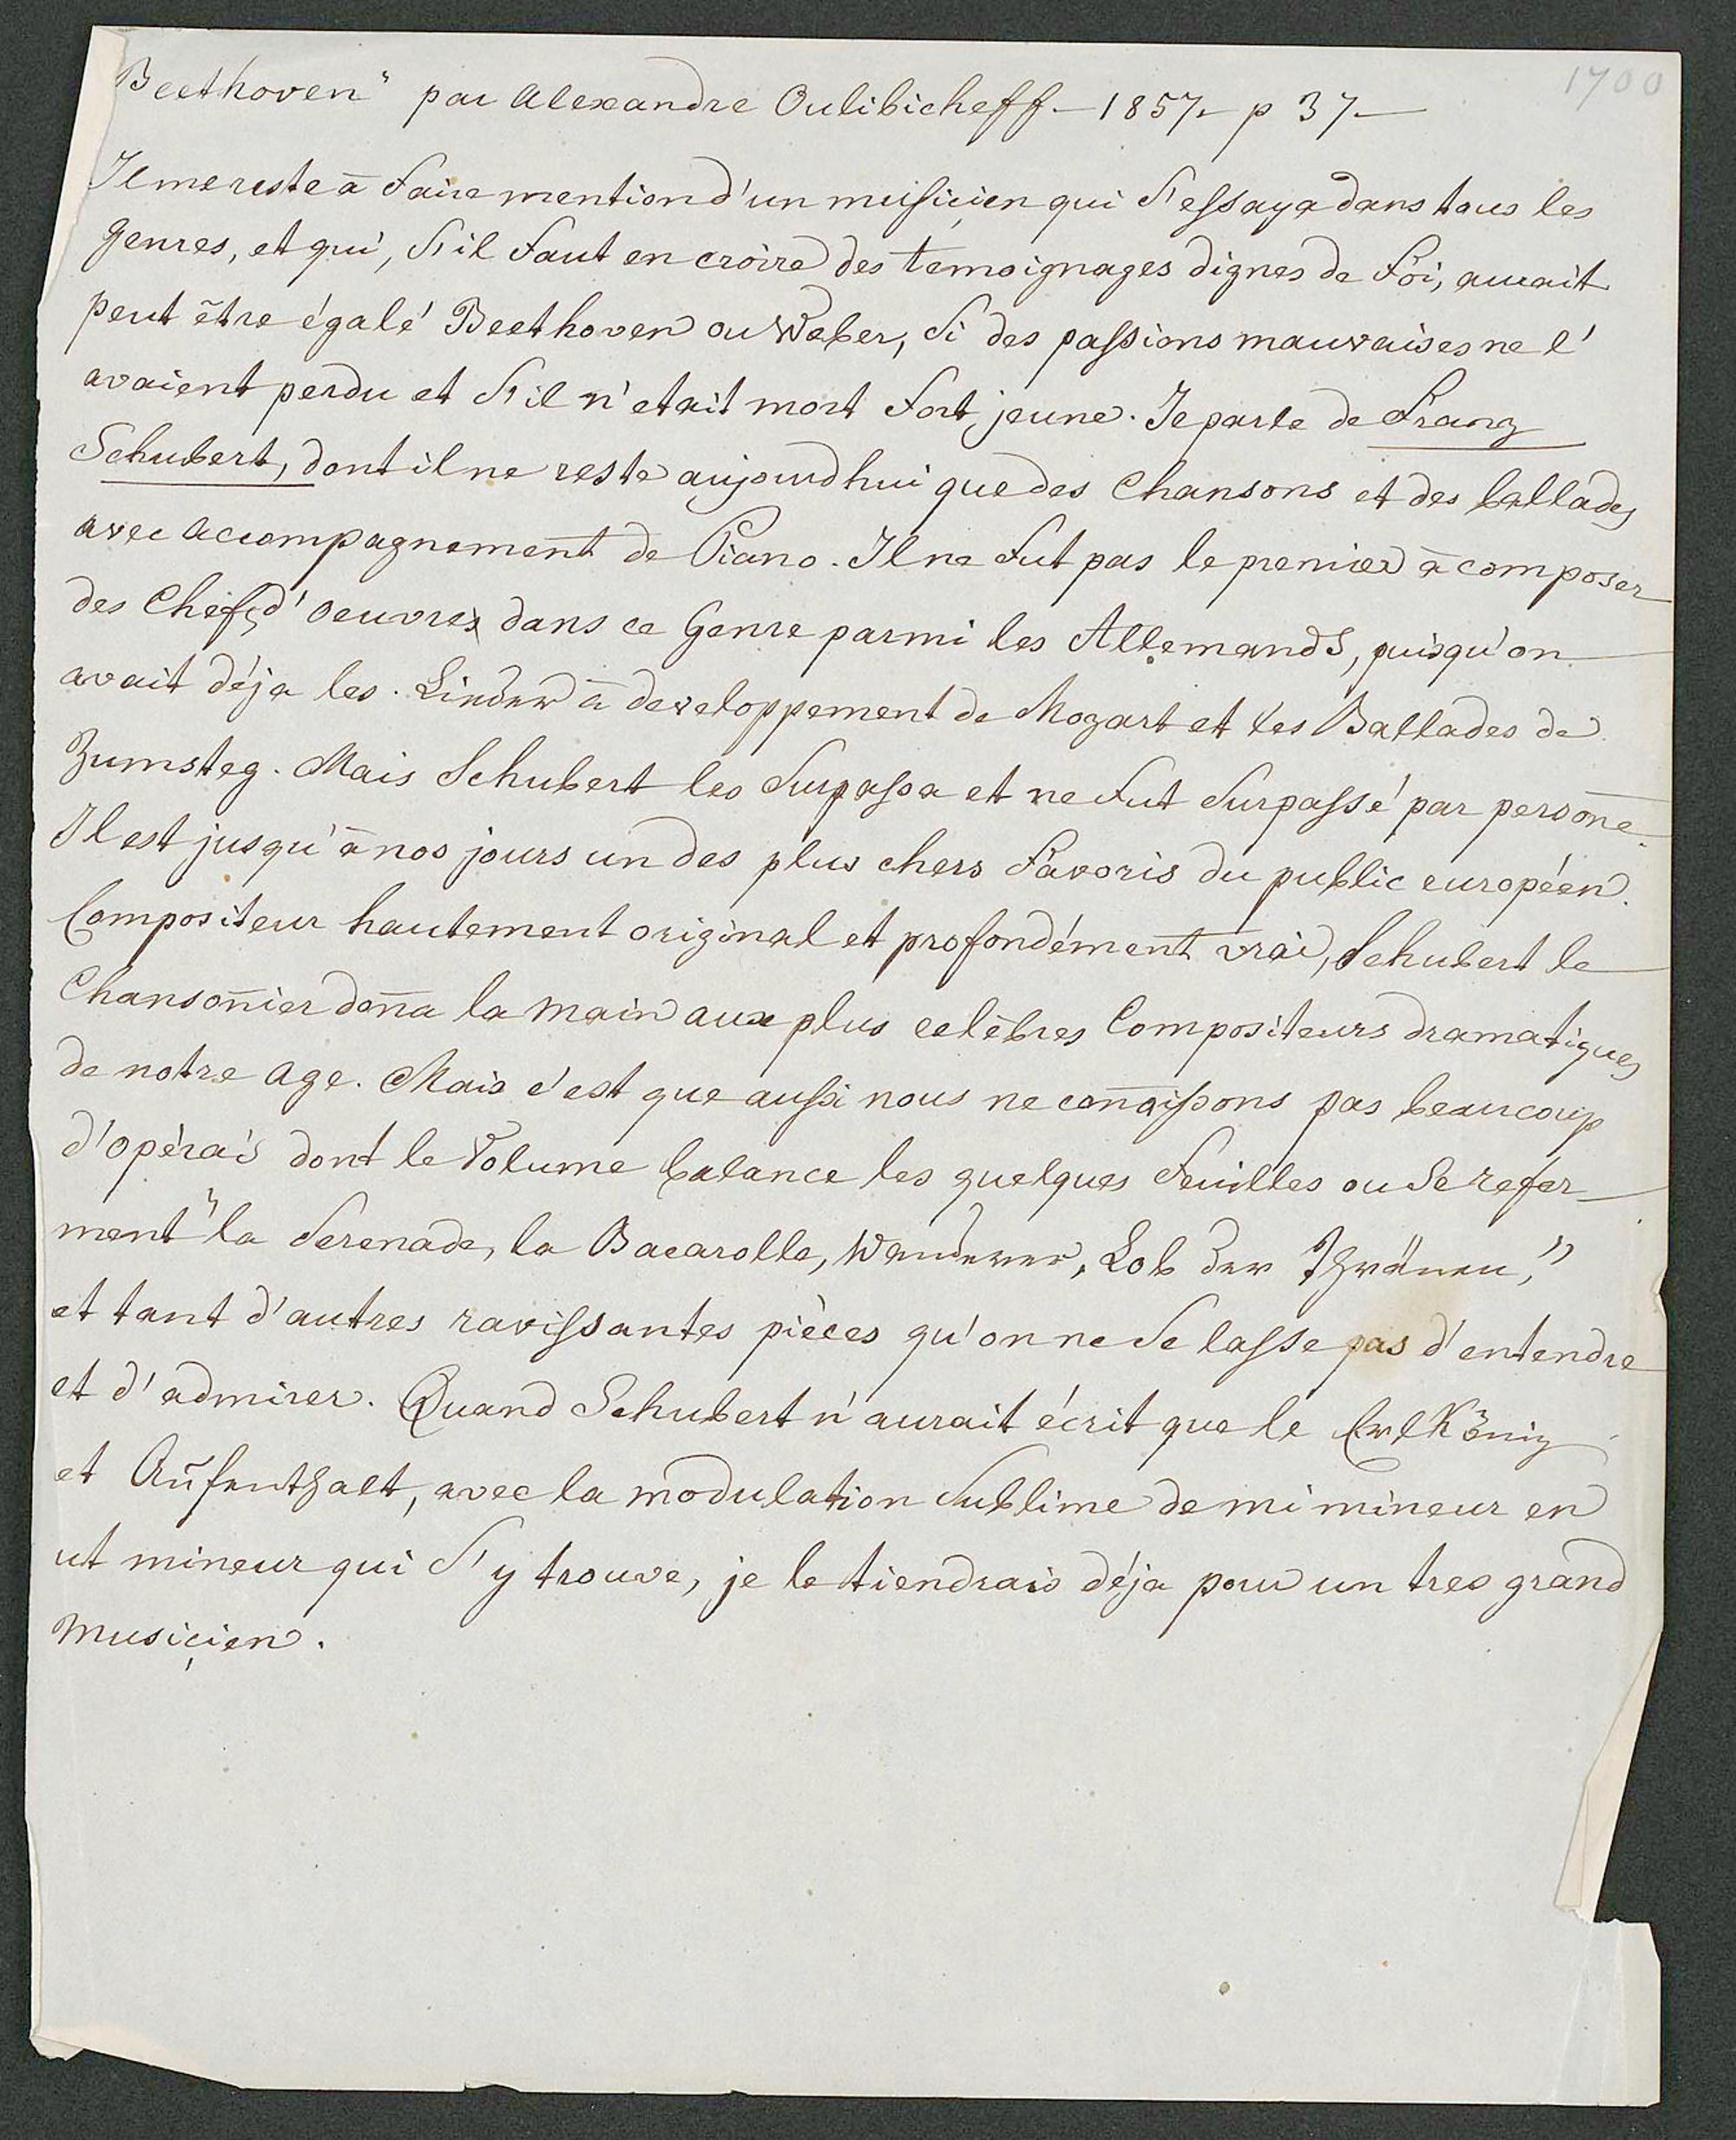 1700
Beethoven" par Alexandre Oulibicheff - 1857 - p 37 -
Il me reste à faire mention d'un musicien qui s'essaya dans tous les
genres, et qui, s'il faut en croire des temoignages dignes de foi, aurait
peut être égalé Beethoven ou Weber, si des passions mauvaises ne l'
avaient perdu et s'il n'etait mort fort jeune. Je parle de Franz
Schubert, dont il ne reste aujourdhui que des Chansons et des ballades
avec accompagnement de Piano. Il ne fut pas le premier à composer
des Chefs d'oeuvres dans ce Genre parmi les Allemands, puisqu'on
avait déja les Lieder à developpement de Mozart et les Ballades de
Zumsteg. Mais Schubert les surpassa et ne fut surpassé par persone̅.
Il est jusqu'à nos jours un des plus chers favoris du public européen.
Compositeur hautement original et profondément vrai, Schubert le
Chanson̅ier don̅a la main aux plus celèbres Compositeurs dramatiques
de notre age. Mais c'est que aussi nous ne con̅aissons pas beaucoup
d'opéra's dont le volume balance les quelques feuilles ou se refer-
ment "la Serenade, la Bacarolle, Wanderer, Lob der Thränen,"
et tant d'autres ravissantes pièces qu'on ne se lasse pas d'entendre
et d'admirer. Quand Schubert n'aurait écrit que le Erlkönig
et Aufenthalt, avec la modulation sublime de mi mineur en
ut mineur qui s'y trouve, je le tiendrais déja pour un tres grand
musicien.